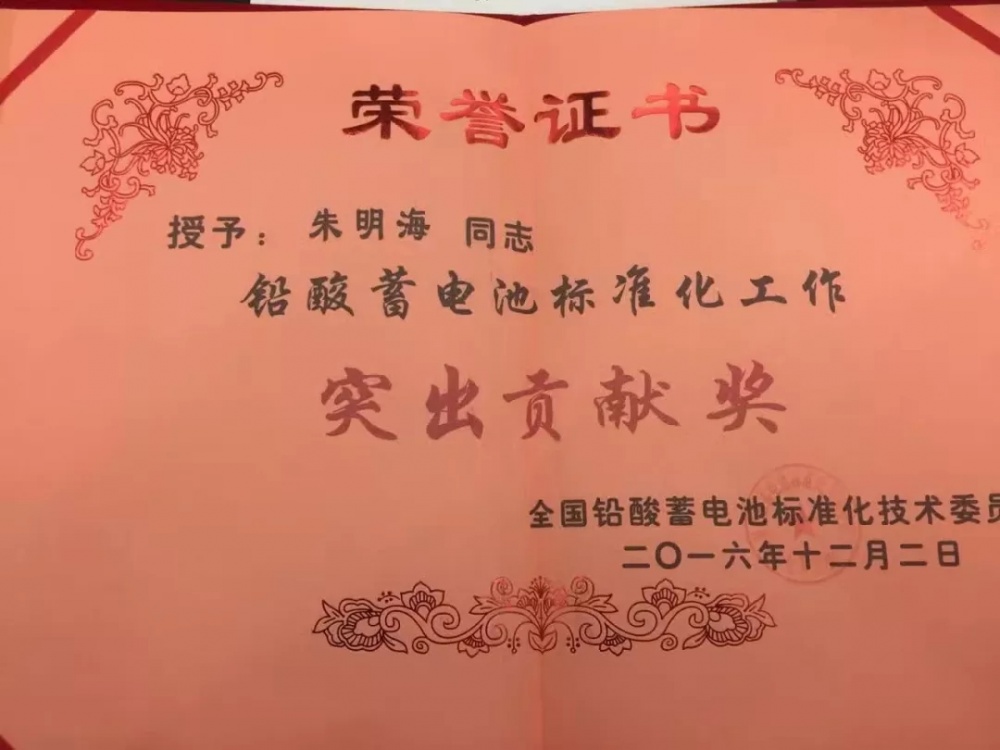 荣誉证书
授予：朱明海 同志
铅酸蓄电池标准化工作
突出贡献奖
全国铅酸蓄电池标准化技术委员
二〇一六年十二月二日